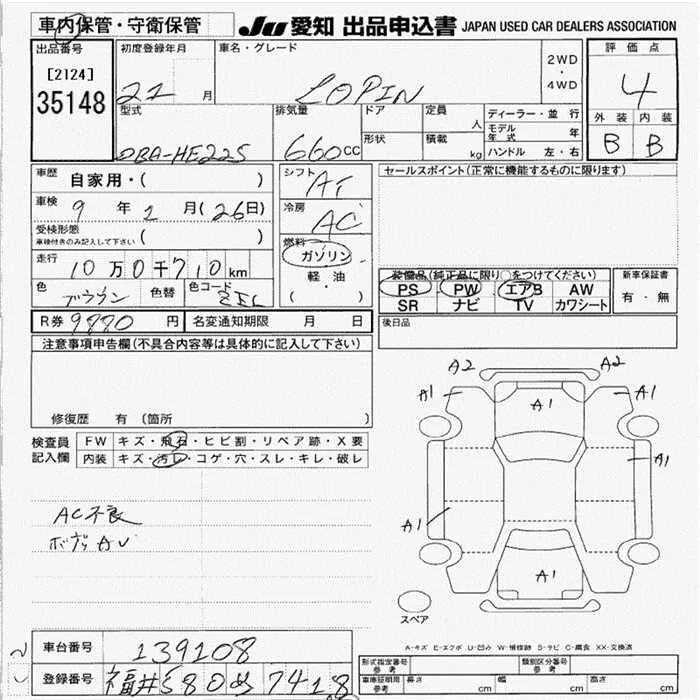 車内保管・守衛保管
JU 愛知 出品申込書 JAPAN USED CAR DEALERS ASSOCIATION
出品番号
[2124]
35148
初度登録年月
21 月
車名・グレード
LOPIN
2WD
・
4WD
評価点
4
外装 内装
B B
型式
DBA-HE22S
排気量
660cc
ドア
形状
定員
人
積載
kg
ディーラー・並行
モデル年式 年
ハンドル 左・右
車歴
自家用・( )
車検
9 年 2 月(26日)
受検形態
車検付きのみ記入して下さい ( )
走行
10万0千710km
色
ブラウン
色替
色コード
シフト
AT
冷房
AC
燃料
ガソリン
軽・油
( ・ )
セールスポイント(正常に機能するものに限ります)
装備品(純正品に限り○をつけてください)
PS PW エアB AW
SR ナビ TV カワシート
新車保証書
有・無
後日品
R券 9880 円
名変通知期限 月 日
注意事項申告欄(不具合内容等は具体的に記入して下さい)
修復歴 有 (箇所 )
検査員
記入欄
FW キズ・飛石・ヒビ割・リペア跡・X要
内装 キズ・汚レ・コゲ・穴・スレ・キレ・破レ
AC不良
A2 A2
A1 A1 A1
A1
A1
A1
スペア
A-キズ E-エクボ U-凹み W-補修跡 S-サビ C-腐食 XX-交換済
車台番号
139108
登録番号
福井580 7418
形式指定番号
参考
類別区分番号
参考
車庫証明用
参考
長さ cm
幅 cm
高さ cm